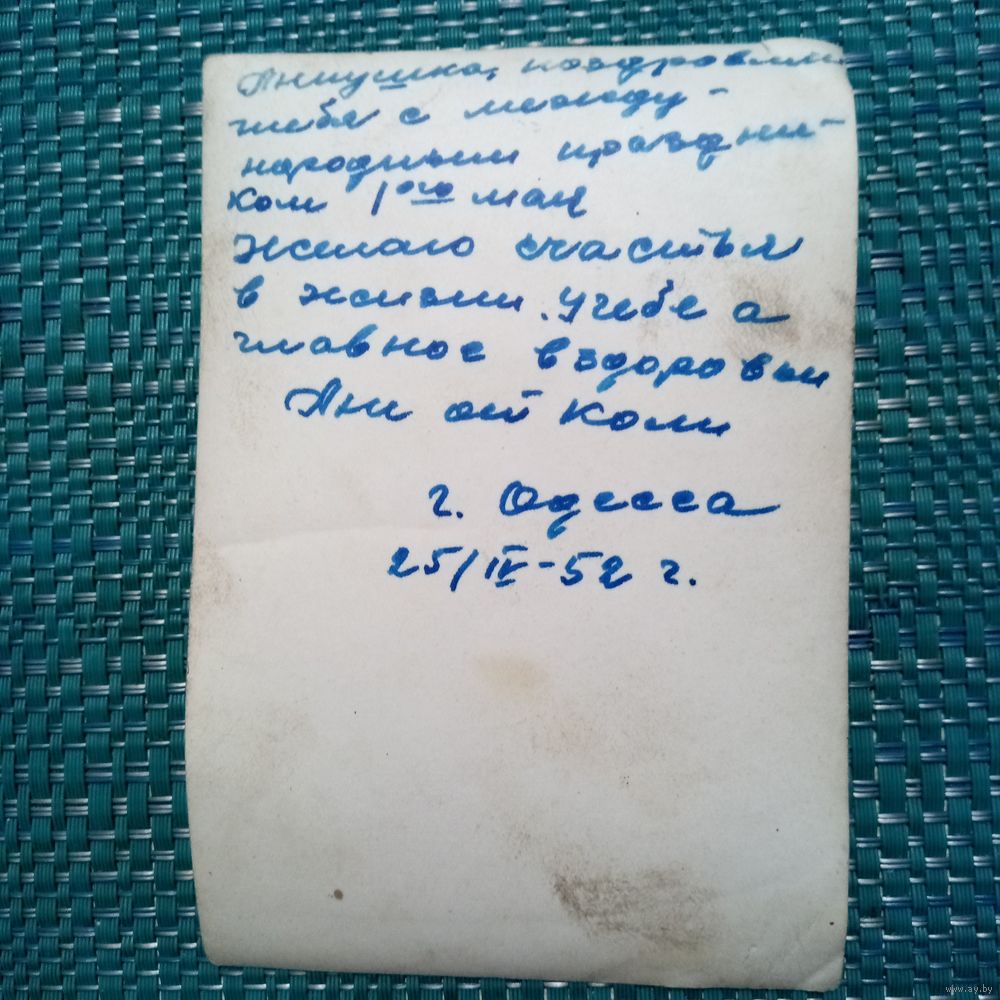 Аннушка, поздравляю
тебя с между-
народным праздни-
ком 1ого мая
Желаю счастья
в жизни, учебе а
главное в здоровьи
Ани от Коли
г. Одесса
25/IV-52 г.
www.ay.by